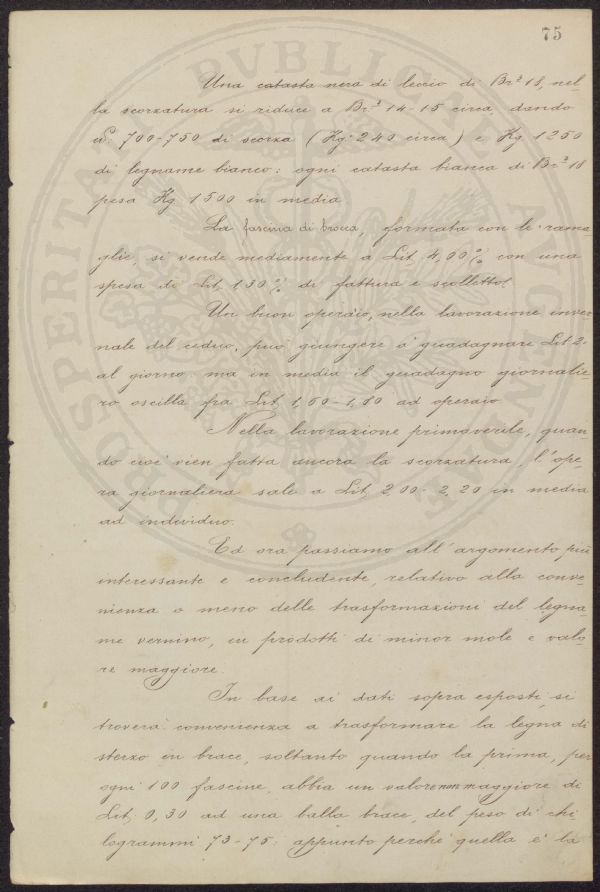 75
Una catasta nera di leccio di Br.ª 18, nel-
la scorzatura si riduce a Br.ª 14-15 circa, dando
700-750 di scorza (Kg. 240 circa) e Kg. 1250
di legname bianco: ogni catasta bianca di Br.ª 18
pesa Kg 1500 in media
La fascina di brocca, formata con le rama-
glie, si vende mediamente a Lit. 4,00 % con una
spesa di Lit. 1,30 % di fattura e scolletto.
Un buon operaio, nella lavorazione inver-
nale del ceduo, può giungere a guadagnare Lit 2.
al giorno ma in media il guadagno giornalie-
ro oscilla fra Lit. 1,60-1,80 ad operaio
Nella lavorazione primaverile, quan-
do cioè vien fatta ancora la scorzatura, l'ope-
ra giornaliera sale a Lit, 2,00-2,20 in media
ad individuo.
Ed ora passiamo all'argomento più
interessante e concludente, relativo alla conve-
nienza o meno delle trasformazioni del legna-
me vernino, in prodotti di minor mole e valo-
re maggiore.
In base ai dati sopra esposti, si
troverà convenienza a trasformare la legna di
sterzo in brace, soltanto quando la prima, per
ogni 100 fascine, abbia un valore non maggiore di
Lit, 0,30 ad una balla brace, del peso di chi
logrammi 73-75: appunto perchè quella è la
PVBLIC
PROSPERITA
AVGENDAE